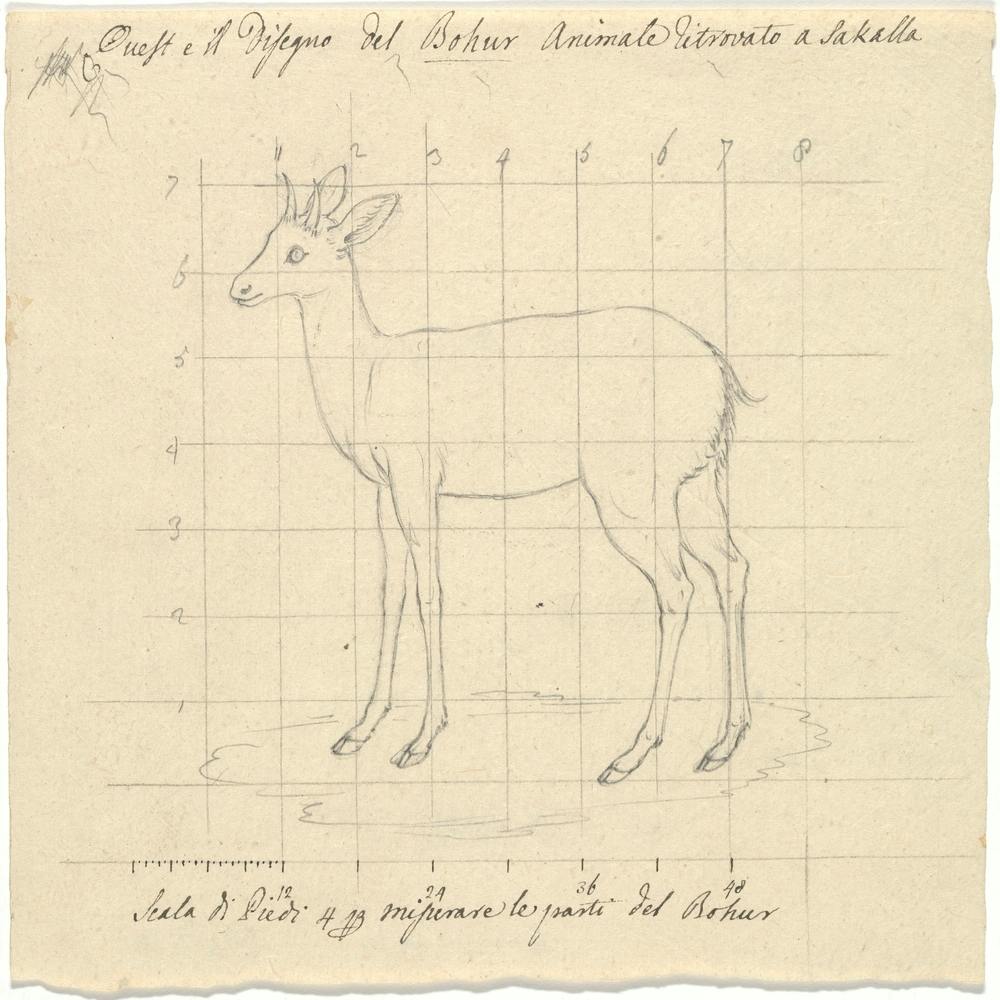 Quest e il Disegno del Bohur Animale ritrovato a Sakalla
1 2 3 4 5 6 7 8
7
6
5
4
3
2
1
12 24 36 48
Scala di Piedi 4 misurare le parti del Bohur